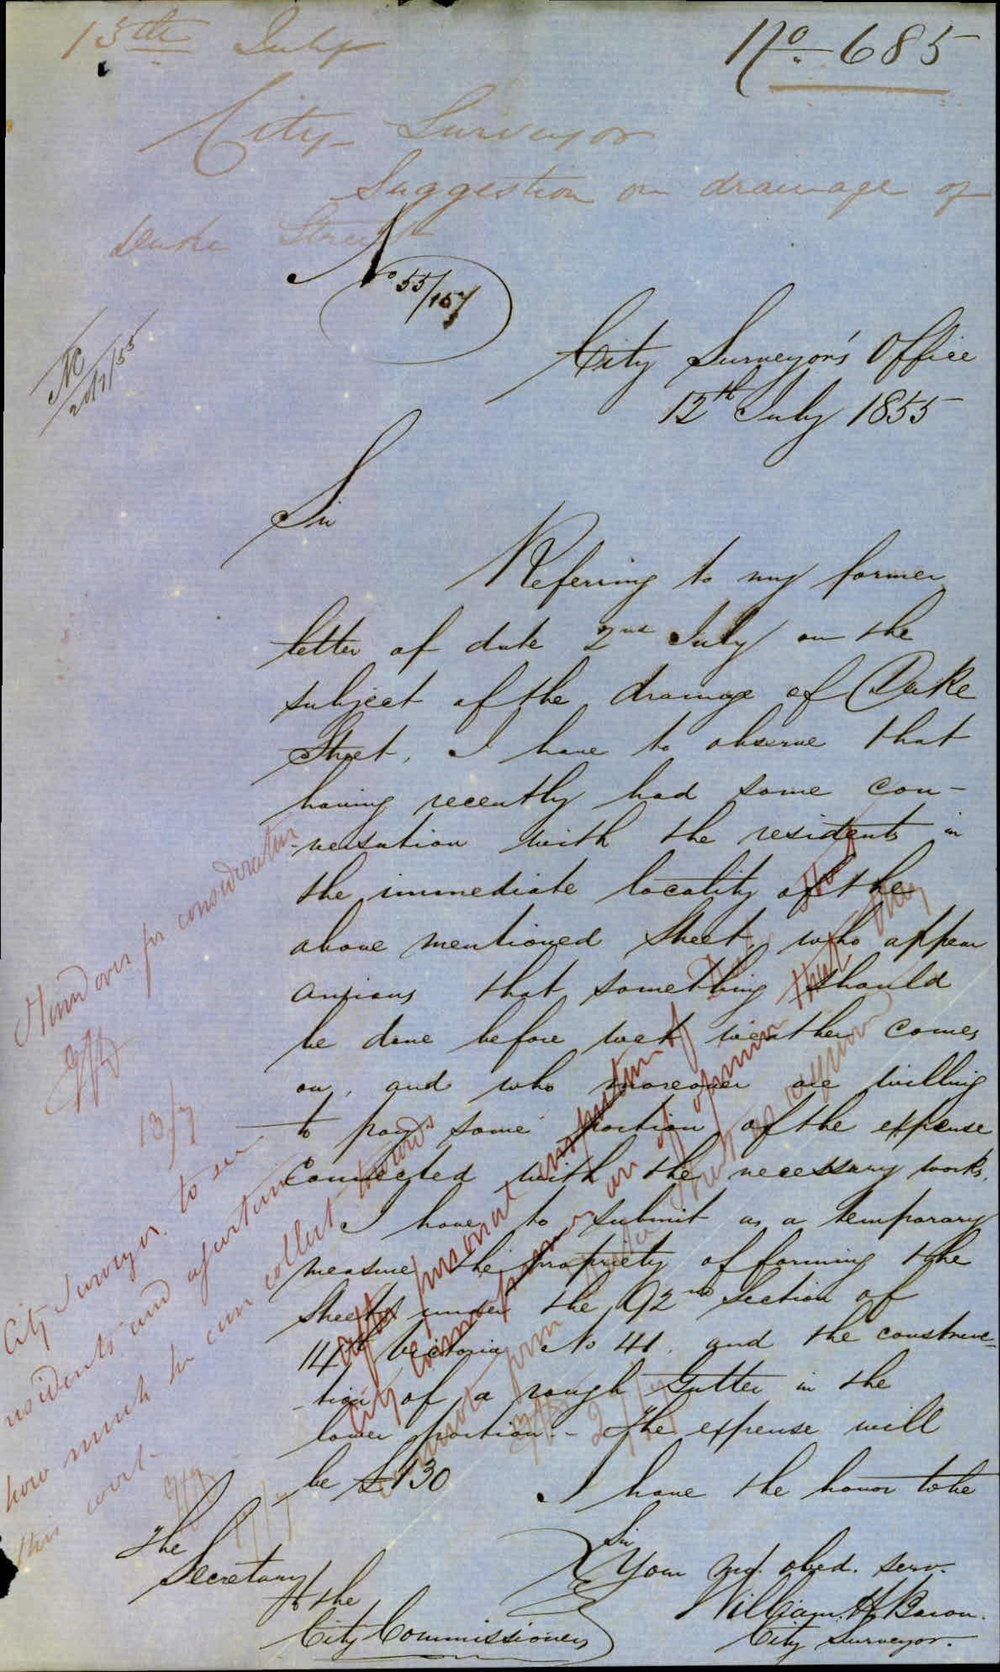 13th July
No. 685
City Surveyor
Suggestion on drawage of
Duke Street
No 55/157
City Surveyor's Office
12th July 1855
20/7/55
Sir
Referring to my former
letter of date 2nd July on the
subject of the drainage of Duke
Street, I have to observe that
having recently had some con-
-versation with the residents in
the immediate locality of the
above mentioned Street, who appear
anxious that something should
be done before wet weather comes
on, and who moreover are willing
to pay some portion of the expense
connected with the necessary works.
I have to submit as a temporary
measure, the propriety of forming the
Street under the 92nd Section of
14th Victoria No 41. and the construc-
-tion of a rough Gutter in the
lower portion. - The expense will
be £130
I have the honor to be
Sir
Your mo. obed. serv.
William H Baron.
City Surveyor.
The
Secretary
to the
City Commissioners
Hand over for consideration
13/7
City Surveyor to see
residents and ascertain
how much he can collect towards
this work -
17/7
After personal inspection of the
City Commissioners are of opinion that they
cannot form
27/7